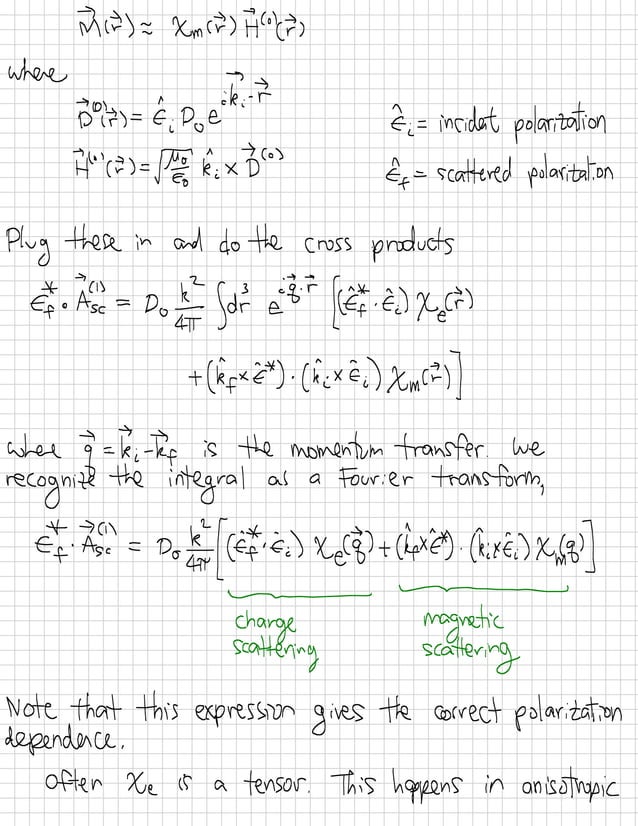 M⃗(r⃗) ≈ χₘ(r⃗) H⃗⁽⁰⁾(r⃗)
where
D⃗⁽⁰⁾(r⃗) = ε̂ᵢ D₀ e^{i k⃗ᵢ·r⃗}
ε̂ᵢ = incident polarization
H⃗⁽⁰⁾(r⃗) = √(μ₀/ε₀) k̂ᵢ × D⃗⁽⁰⁾
ε̂_f = scattered polarization
Plug these in and do the cross products
ε̂_f* · A⃗_sc⁽¹⁾ = D₀ k²/4π ∫dr³ e^{i q⃗·r⃗} [(ε̂_f* · ε̂ᵢ) χₑ(r⃗)
+ (k̂_f × ε̂*) · (k̂ᵢ × ε̂ᵢ) χₘ(r⃗)]
where q⃗ = k⃗ᵢ - k⃗_f is the momentum transfer. We
recognize the integral as a Fourier transform,
ε̂_f* · A⃗_sc⁽¹⁾ = D₀ k²/4π [(ε̂_f* · ε̂ᵢ) χₑ(q⃗) + (k̂_f × ε̂*) · (k̂ᵢ × ε̂ᵢ) χₘ(q)]
charge
scattering
magnetic
scattering
Note that this expression gives the correct polarization
dependence.
Often χₑ is a tensor. This happens in anisotropic